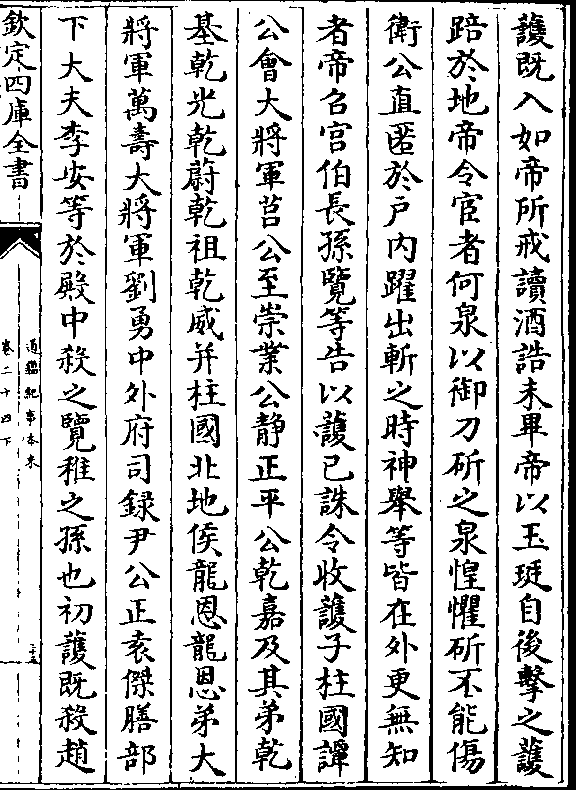 護既入如帝所戒讀酒誥未畢帝以玉珽自後擊之護
踣於地帝令宦者何泉以御刀斫之泉惶懼斫不能傷
衛公直匿於戶内躍出斬之時神舉等皆在外更無知
者帝召宫伯長孫覽等告以護已誅令收護子柱國譚
公會大將軍莒公至崇業公静正平公乾嘉及其弟乾
基乾光乾蔚乾祖乾威并柱國北地侯龍恩龍恩弟大
將軍萬壽大將軍劉勇中外府司録尹公正袁傑膳部
下大夫李安等於殿中殺之覽稚之孫也初護既殺趙
欽定四庫全書
通鑑紀事本末
卷二十四下